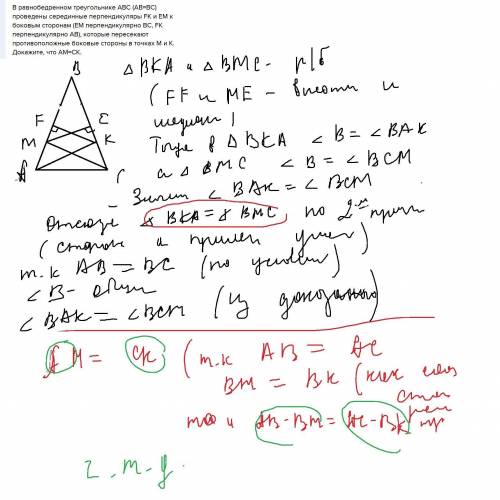 В равнобедренном треугольнике ABC (AB=BC)
проведены серединные перпендикуляры FK и EM к
боковым сторонам (EM перпендикулярно BC, FK
перпендикулярно AB), которые пересекают
противоположные боковые стороны в точках M и K.
Докажите, что AM=CK.
B
F E
M K
A C
△ BKA и △ BMC - р/б
( FF и ME - высоты и
медианы )
Тогда в △ BKA ∠ B = ∠ BAK
а △ BMC ∠ B = ∠ BCM
Значит ∠ BAK = ∠ BCM
Отсюда △ BKA = △ BMC по 2-м
( сторона и прилеж углы )
т.к AB = BC (по условию)
∠ B - общий
∠ BAK = ∠ BCM (из доказанного)
AM = CK ( т.к AB = AC
BM = BK ( как
то и AB - BM = AC - BK
ч.т.д.